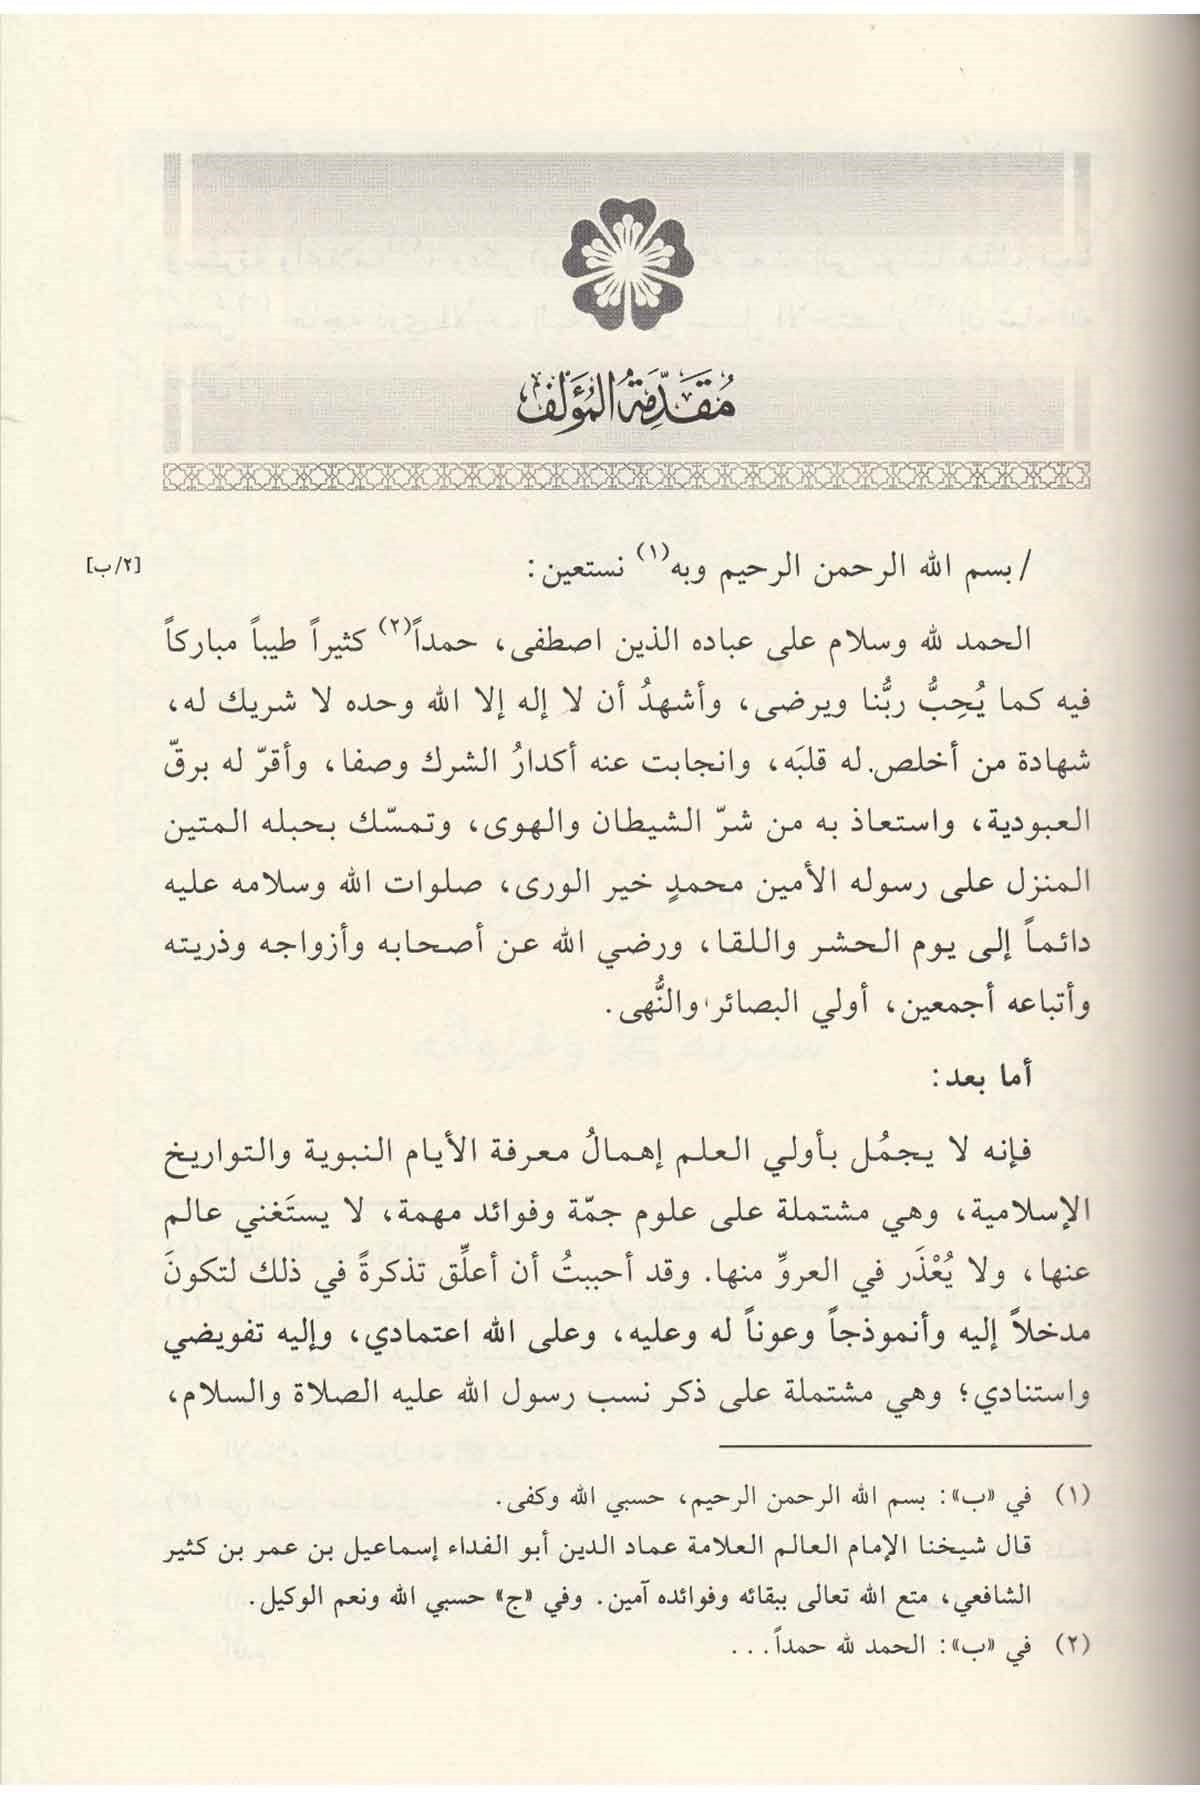 مُقَدِّمَةُ المُؤَلِّف
/ بسم الله الرحمن الرحيم وبه(١) نستعين:
[٢/ب]
الحمد لله وسلام على عباده الذين اصطفى، حمداً(٢) كثيراً طيباً مباركاً
فيه كما يُحِبُّ ربُّنا ويرضى، وأشهدُ أن لا إله إلا الله وحده لا شريك له،
شهادة من أخلص له قلبَه، وانجابت عنه أكدارُ الشرك وصفا، وأقرّ له برقّ
العبودية، واستعاذ به من شرّ الشيطان والهوى، وتمسّك بحبله المتين
المنزل على رسوله الأمين محمدٍ خير الورى، صلوات الله وسلامه عليه
دائماً إلى يوم الحشر واللقا، ورضي الله عن أصحابه وأزواجه وذريته
وأتباعه أجمعين، أولي البصائر والنُّهى.
أما بعد:
فإنه لا يجمُل بأولي العلم إهمالُ معرفة الأيام النبوية والتواريخ
الإسلامية، وهي مشتملة على علوم جمّة وفوائد مهمة، لا يستَغني عالم
عنها، ولا يُعْذَر في العروِّ منها. وقد أحببتُ أن أعلِّق تذكرةً في ذلك لتكونَ
مدخلاً إليه وأنموذجاً وعوناً له وعليه، وعلى الله اعتمادي، وإليه تفويضي
واستنادي؛ وهي مشتملة على ذكر نسب رسول الله عليه الصلاة والسلام،
(١) في «ب»: بسم الله الرحمن الرحيم، حسبي الله وكفى.
قال شيخنا الإمام العالم العلامة عماد الدين أبو الفداء إسماعيل بن عمر بن كثير
الشافعي، متع الله تعالى ببقائه وفوائده آمين. وفي «ج» حسبي الله ونعم الوكيل.
(٢) في «ب»: الحمد لله حمداً...